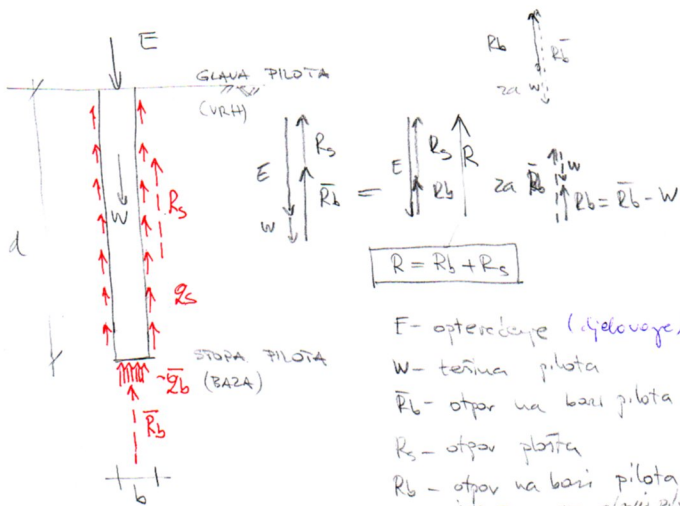 E
GLAVA PILOTA
(VRH)
Rb R̄b
za W
d
W
Rs
qs
E W Rs R̄b = E Rs Rb R za R̄b W Rb = R̄b - W
R = Rb + Rs
STOPA PILOTA
(BAZA)
q̄b
R̄b
b
E - opterećenje (djelovanje,
W - težina pilota
R̄b - otpor na bazi pilota
Rs - otpor plašta
Rb - otpor na bazi pilota